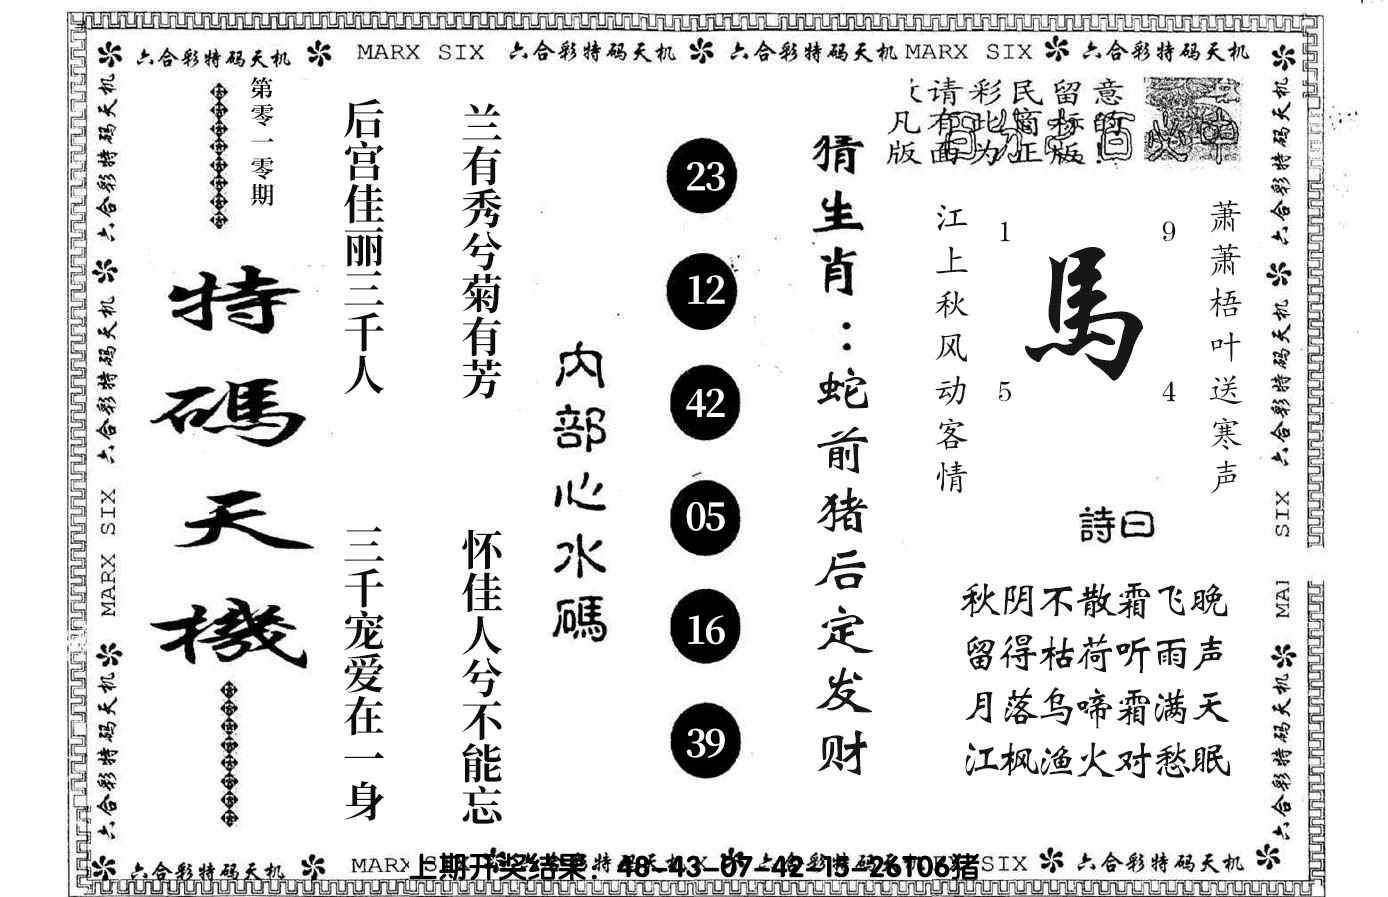 六合彩特码天机 MARX SIX 六合彩特码天机 六合彩特码天机 MARX SIX 六合彩特码天机
六合彩特码天机 六合彩特码天机 MARX SIX 六合彩特码天机
第零一零期
特碼天機
后宫佳丽三千人
三千宠爱在一身
兰有秀兮菊有芳
怀佳人兮不能忘
内部心水碼
23
12
42
05
16
39
猜生肖：蛇前猪后定发财
请彩民留意
凡有此商标的
版面为正版！
萧萧梧叶送寒声
1
9
馬
5
4
江上秋风动客情
詩曰
秋阴不散霜飞晚
留得枯荷听雨声
月落乌啼霜满天
江枫渔火对愁眠
六合彩特码天机 六合彩特码天机 SIX 六合彩特码天机
六合彩特码天机 MARX SIX 六合彩特码天机
上期开奖结果：48-43-07-42-15-26T06猪